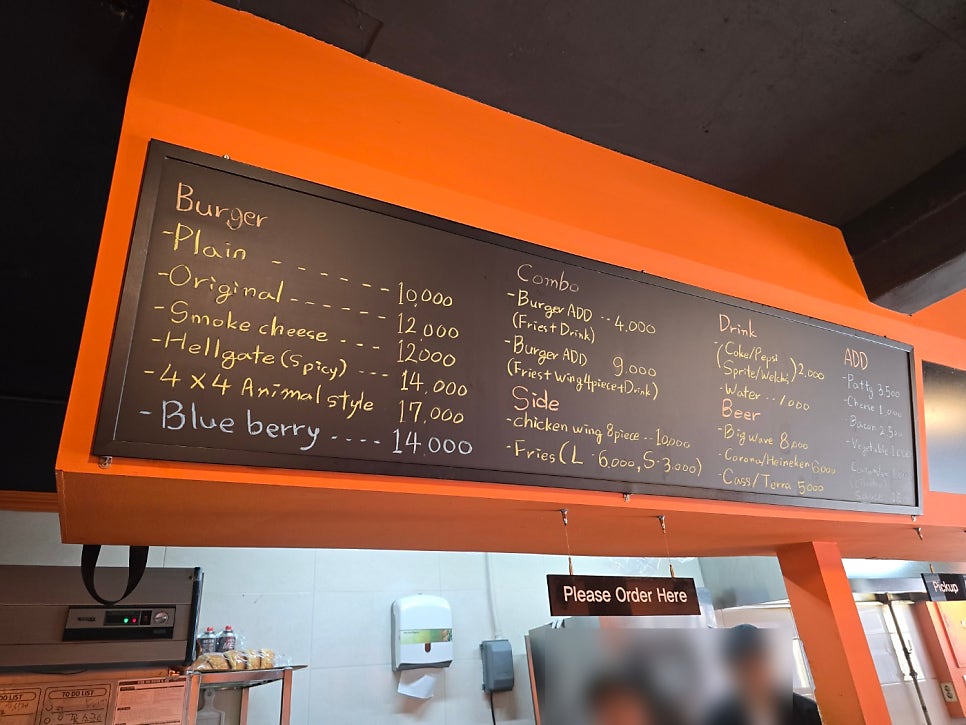 Burger
-Plain ------ 10,000
-Original ------ 12,000
-Smoke cheese --- 12,000
-Hellgate (Spicy) --- 14,000
-4×4 Animal style 17,000
-Blue berry ---- 14,000
Combo
-Burger ADD -- 4,000
(Fries+Drink)
-Burger ADD 9,000
(Fries+wing4piece+Drink)
Side
-chicken wing 8piece -- 10,000
-Fries (L-6,000, S-3,000)
Drink
-(Coke/Pepsi
Sprite/Welch's) 2,000
-Water -- 1,000
Beer
-Big wave 8,000
-Corona/Heineken 6,000
-Cass/Terra 5000
ADD
-Patty 3,500
-Cheese 1,000
-Bacon 2,500
-Vegetable
Please Order Here
Pickup
TO DO LIST